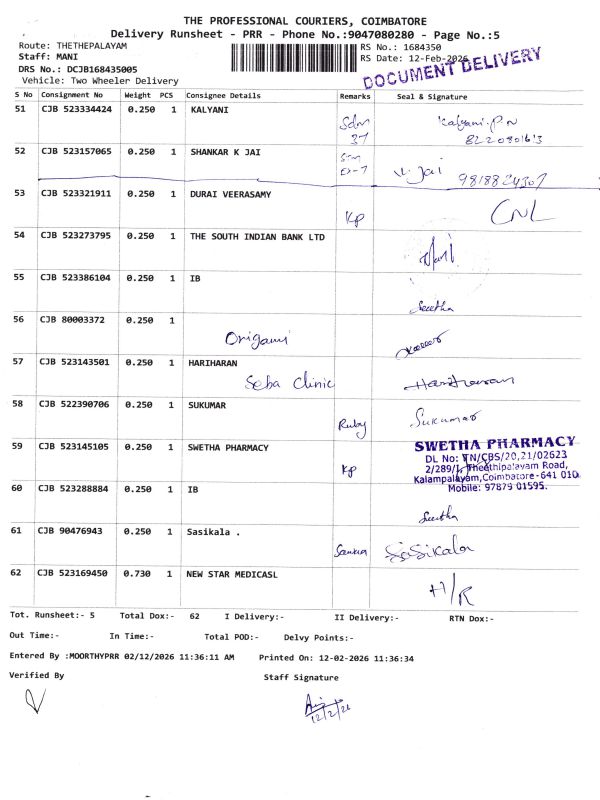 THE PROFESSIONAL COURIERS, COIMBATORE
Delivery Runsheet - PRR - Phone No.:9047080280 - Page No.:5
Route: THETHEPALAYAM
RS No.: 1684350
Staff: MANI
RS Date: 12-Feb-2026
DRS No.: DCJB168435005
DOCUMENT DELIVERY
Vehicle: Two Wheeler Delivery
S No Consignment No Weight PCS Consignee Details Remarks Seal & Signature
51 CJB 523334424 0.250 1 KALYANI Kalyani.P.N
37
52 CJB 523157065 0.250 1 SHANKAR K JAI Jai 9818824307
53 CJB 523321911 0.250 1 DURAI VEERASAMY Kp CNL
54 CJB 523273795 0.250 1 THE SOUTH INDIAN BANK LTD
55 CJB 523386104 0.250 1 IB
Swetha
56 CJB 80003372 0.250 1
Origami
57 CJB 523143501 0.250 1 HARIHARAN
Seba Clinic Hariharan
58 CJB 522390706 0.250 1 SUKUMAR Ruby Sukumar
59 CJB 523145105 0.250 1 SWETHA PHARMACY Kp
SWETHA PHARMACY
DL No: TN/CBS/20,21/02623
2/289/ Theethipalayam Road,
Kalampalayam,Coimbatore-641 010.
Mobile: 97879 01595.
60 CJB 523288884 0.250 1 IB
Swetha
61 CJB 90476943 0.250 1 Sasikala . Sasikala
62 CJB 523169450 0.730 1 NEW STAR MEDICASL H/R
Tot. Runsheet:- 5 Total Dox:- 62 I Delivery:- II Delivery:- RTN Dox:-
Out Time:- In Time:- Total POD:- Delvy Points:-
Entered By :MOORTHYPRR 02/12/2026 11:36:11 AM Printed On: 12-02-2026 11:36:34
Verified By Staff Signature
12/2/26